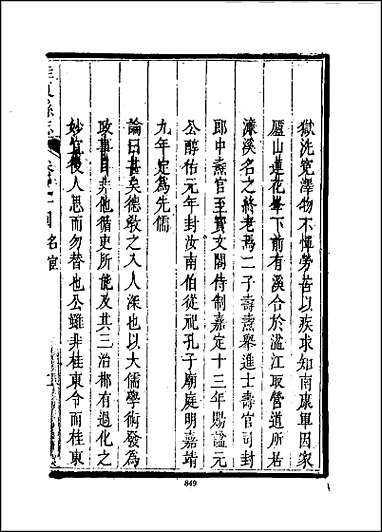 獄洗冤澤物不憚勞苦以疾求知南康軍因家
廬山蓮花峯下前有溪合於湓江取營道所居
濂溪名之終老焉二子壽燾舉進士壽官司封
郎中燾官至寶文閣侍制嘉定十三年賜諡元
公醇佑元年封汝南伯從祀孔子廟庭明嘉靖
九年定為先儒
論曰甚矣德敎之入人深也以大儒學術發為
政事自非他循吏所能及其三治郴有過化之
妙宜後人思而勿替也公雖非桂東令而桂東
桂東縣志
名宦
849